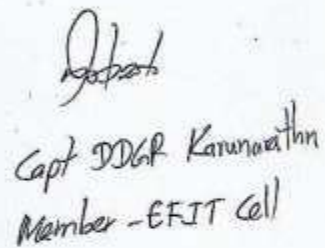 Capt DDGR Karunarathn
Member - EFIT Cell